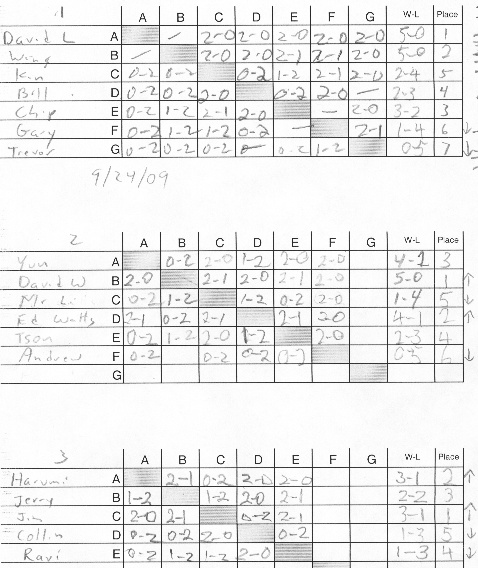 1 A B C D E F G W-L Place
David L A – 2-0 2-0 2-0 2-0 2-0 5-0 1
Wing B – 2-0 2-0 2-1 2-1 2-0 5-0 2
Kin C 0-2 0-2 0-2 1-2 2-1 2-0 2-4 5
Bill D 0-2 0-2 2-0 0-2 2-0 – 2-3 4
Chip E 0-2 1-2 2-1 2-0 – 2-0 3-2 3
Gary F 0-2 1-2 1-2 0-2 – 2-1 1-4 6 ↓
Trevor G 0-2 0-2 0-2 0-2 1-2 0-5 7 ↓
9/24/09
2 A B C D E F G W-L Place
Yun A 0-2 2-0 1-2 2-0 2-0 3
David W B 2-0 2-1 2-0 2-1 2-0 5-0 1 ↑
C 0-2 1-2 1-2 0-2 2-0 1-4 5 ↓
Ed Watts D 2-1 0-2 2-1 2-1 2-0 4-1 2 ↑
Tson E 0-2 1-2 2-0 1-2 2-0 2-3 4
Andrew F 0-2 0-2 0-2 0-2 0-5 6 ↓
G
3 A B C D E F G W-L Place
Harumi A 2-1 0-2 2-0 2-0 3-1 2 ↑
Jerry B 1-2 1-2 2-0 2-1 2-2 3
Jim C 2-0 2-1 0-2 2-1 3-1 1 ↑
Collin D 0-2 0-2 2-0 0-2 1-3 5 ↓
Ravi E 0-2 1-2 1-2 2-0 1-3 4 ↓